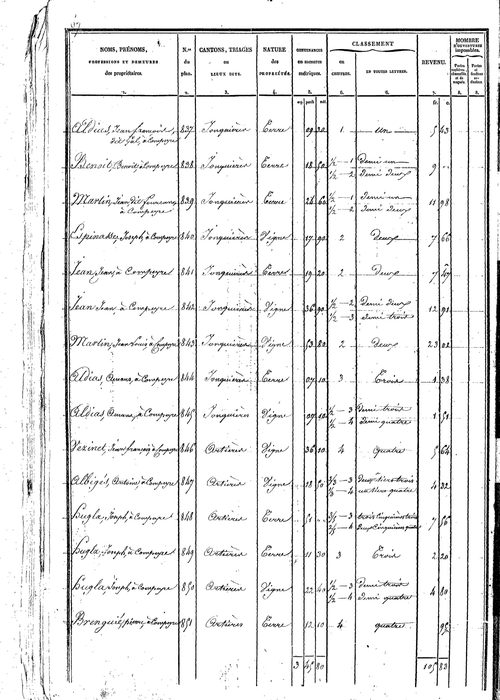 NOMS, PRÉNOMS,
PROFESSIONS ET DEMEURES
des propriétaires.
N.os
du
plan.
CANTONS, TRIAGES
OU
LIEUX DITS.
NATURE
DES
PROPRIÉTÉS.
CONTENANCES
EN MESURES
métriques.
CLASSEMENT
EN
CHIFFRES.
EN TOUTES LETTRES.
REVENU.
NOMBRE
D'OUVERTURES
imposables.
1. 2. 3. 4. 5. 6. 7.
Aldias, Jean francois, 837 Jonquières Terre 09 30 1 un 5 43
à Compeyre
Benoit, Benoit à Compeyre 838 Jonquières Terre 18 50 1/2 — 1 Demi un 9
1/2 — 2 Demi Deux
Martin, Jean 839 Jonquières Terre 26 60 1/2 — 1 Demi un 11 98
à Compeyre 1/2 — 2 Demi Deux
Espinasse, Joseph, à Compeyre 840 Jonquières Vigne 17 90 2 Deux 7 66
Jean, Jean à Compeyre 841 Jonquières Terre 19 20 2 Deux 7 47
Jean Jean, à Compeyre 842 Jonquières Vigne 36 90 1/2 — 2 Demi Deux 12 91
1/2 — 3 Demi trois
Martin, Jean Louis à Compeyre 843 Jonquières Vigne 53 80 2 Deux 23 02
Aldias, à Compeyre 844 Jonquières Terre 07 10 3 Trois 1 38
Aldias, à Compeyre 845 Jonquières Vigne 07 10 1/2 — 3 Demi trois 1 51
1/2 — 4 Demi quatre
Vezinet, Jean françois à Compeyre 846 Artières Vigne 36 10 4 quatre 5 64
Albigès, Antoine à Compeyre 847 Artières Vigne 18 50 2/3 — 3 Deux tiers trois 4 32
1/3 — 4 un tiers quatre
Hugla, Joseph, à Compeyre 848 Artières Terre 51 3/5 — 3 trois Cinquièmes trois 7 56
2/5 — 4 Deux Cinquièmes quatre
Hugla, Joseph, à Compeyre 849 Artières Terre 11 30 3 Trois 2 20
Hugla, Joseph, à Compeyre 850 Artières Vigne 22 40 1/2 — 3 Demi trois 4 80
1/2 — 4 Demi quatre
Brenguié, pierre, à Compeyre 851 Artières Terre 12 10 4 quatre 95
3 45 80 105 83